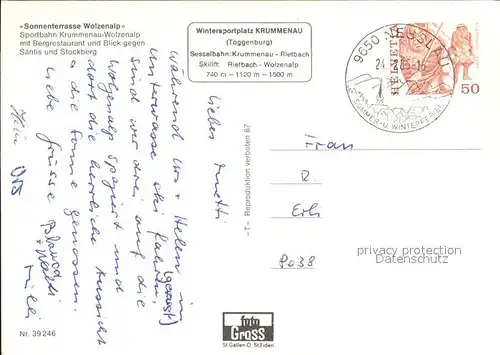 «Sonnenterrasse Wolzenalp»
Sportbahn Krummenau-Wolzenalp
mit Bergrestaurant und Blick gegen
Säntis und Stockberg
Wintersportplatz KRUMMENAU
(Toggenburg)
Sesselbahn: Krummenau - Rietbach
Skilift: Rietbach - Wolzenalp
740 m — 1120 m — 1500 m
9650 NESSLAU
SOMMER- U. WINTERFERIEN
HELVETIA
50
Liebes Muetti
Während Urs + Helen in
Unterwasser ski fahren,
sind wir drei auf die
Wolzenalp spaziert und
dort die herrliche Aussicht
und die Sonne genossen.
Liebe Grüsse
Frau
R.
Erli
privacy protection
Datenschutz
- T - Reproduktion verboten 87
foto
GROSS
St. Gallen O. St. Fiden
Nr. 39246